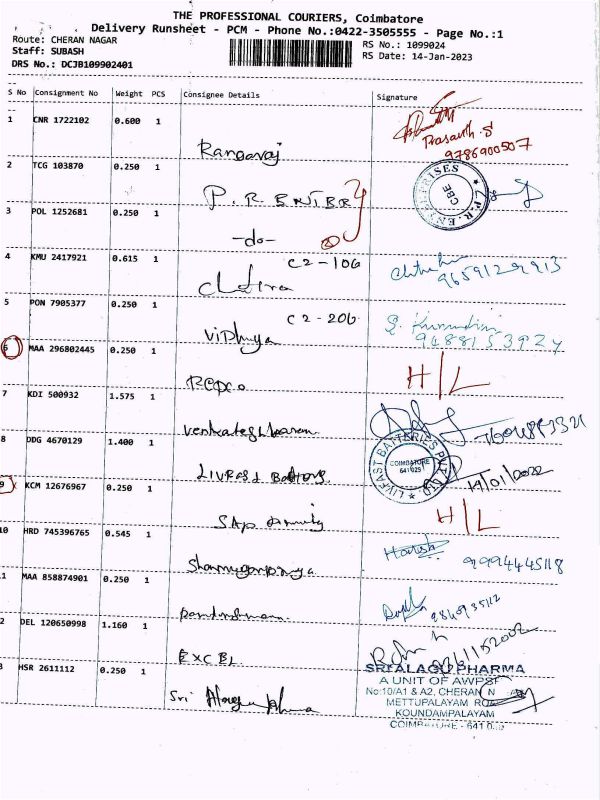 THE PROFESSIONAL COURIERS, Coimbatore
Delivery Runsheet - PCM - Phone No.:0422-3505555 - Page No.:1
Route: CHERAN NAGAR RS No.: 1099024
Staff: SUBASH RS Date: 14-Jan-2023
DRS No.: DCJB109902401
S No Consignment No Weight PCS Consignee Details Signature
1 CNR 1722102 0.600 1 Rangaraj Prasanth.S 9786900507
2 TCG 103870 0.250 1 P.R ENTER P.R.ENTERPRISES CBE
3 POL 1252681 0.250 1 -do-
4 KMU 2417921 0.615 1 C2-10G Chitra 9659129913
5 PON 7905377 0.250 1 C2-20G Vidhuya 9488153924
6 MAA 296802445 0.250 1 Repco H/L
7 KDI 500932 1.575 1 Venkateshwaran
8 DDG 4670129 1.400 1 LIVFAST Battery LIVFAST BATTERIES PVT LTD COIMBATORE 641 029 14/01/2022
9 KCM 12676967 0.250 1 H/L
10 HRD 745396765 0.545 1 Shanmugapriya Harish 9994445118
1 MAA 858874901 0.250 1
2 DEL 120650998 1.160 1 EXCEL
3 HSR 2611112 0.250 1 Sri Alagu Pharma
SRI ALAGU PHARMA
A UNIT OF AWPSF
No:10/A1 & A2, CHERAN N
METTUPALAYAM ROA
KOUNDAMPALAYAM
COIMBATORE - 641 0